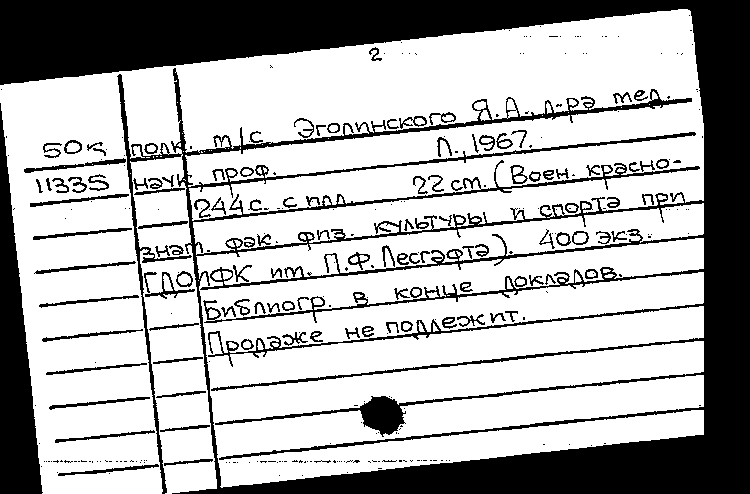 2
50к полк. м/с. Эголинского Я.А., д-ра мед.
11335 наук, проф. Л., 1967.
244 с. с илл. 22 см. (Воен. красно-
знам. фак. физ. культуры и спорта при
ГДОИФК им. П.Ф. Лесгафта). 400 экз.
Библиогр. в конце докладов.
Продаже не подлежит.